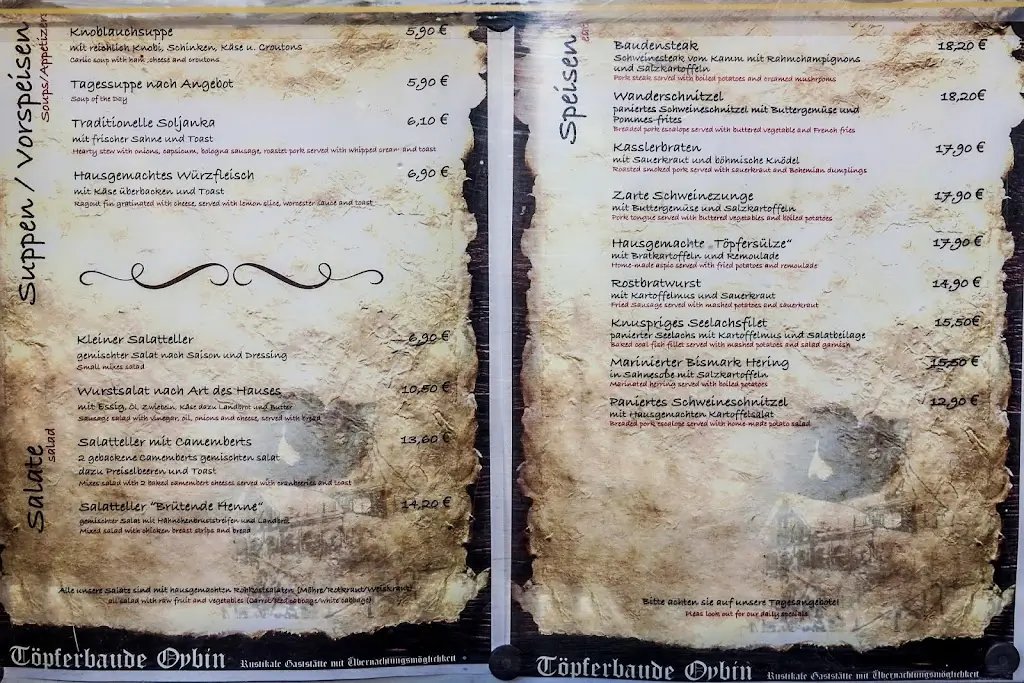 Suppen / Vorspeisen
Soups/Appetizers
Knoblauchsuppe 5,90 €
mit reichlich Knobi, Schinken, Käse u. Croutons
Garlic soup with ham, cheese and croutons
Tagessuppe nach Angebot 5,90 €
Soup of the Day
Traditionelle Soljanka 6,10 €
mit frischer Sahne und Toast
Hearty stew with onions, capsicum, bologna sausage, roastet pork served with whipped cream and toast
Hausgemachtes Würzfleisch 6,90 €
mit Käse überbacken und Toast
Ragout fin gratinated with cheese, served with lemon slice, worcester sauce and toast
Salate
salad
Kleiner Salatteller 6,90 €
gemischter Salat nach Saison und Dressing
Small mixes salad
Wurstsalat nach Art des Hauses 10,50 €
mit Essig, Öl, Zwiebeln, Käse dazu Landbrot und Butter
Sausage salad with vinegar, oil, onions and cheese, served with bread
Salatteller mit Camemberts 13,60 €
2 gebackene Camemberts gemischten salat
dazu Preiselbeeren und Toast
Mixes salad with 2 baked camembert cheeses served with cranberries and toast
Salatteller "Brütende Henne" 14,20 €
gemischter Salat mit Hähnchenbruststreifen und Landbrot
Mixed salad with chicken breast strips and bread
Alle unsere Salate sind mit hausgemachten Rohkostsalaten (Möhre/Rotkraut/Weiskraut)
all salad with raw fruit and vegetables (Carrot/Red cabbage/white cabbage)
Töpferbaude Oybin Rustikale Gaststätte mit Übernachtungsmöglichkeit
Speisen
Baudensteak 18,20 €
Schweinesteak vom Kamm mit Rahmchampignons
und Salzkartoffeln
Pork steak served with boiled potatoes and creamed mushrooms
Wanderschnitzel 18,20€
paniertes Schweineschnitzel mit Buttergemüse und
Pommes-frites
Breaded pork escalope served with buttered vegetable and French fries
Kasslerbraten 17,90 €
mit Sauerkraut und böhmische Knödel
Roasted smoked pork served with sauerkraut and Bohemian dumplings
Zarte Schweinezunge 17,90 €
mit Buttergemüse und Salzkartoffeln
Pork tongue served with buttered vegetables and boiled potatoes
Hausgemachte „Töpfersülze“ 17,90 €
mit Bratkartoffeln und Remoulade
Home-made aspic served with fried potatoes and remoulade
Rostbratwurst 14,90 €
mit Kartoffelmus und Sauerkraut
Fried Sausage served with mashed potatoes and sauerkraut
Knuspriges Seelachsfilet 15,50€
panierter Seelachs mit Kartoffelmus und Salatbeilage
Baked coal fish fillet served with mashed potatoes and salad garnish
Marinierter Bismark Hering 15,50 €
in Sahnesoße mit Salzkartoffeln
Marinated herring served with boiled potatoes
Paniertes Schweineschnitzel 12,90 €
mit Hausgemachten Kartoffelsalat
Breaded pork escalope served with home-made potato salad
Bitte achten sie auf unsere Tagesangebote!
Pleas look out for our daily specials
Töpferbaude Oybin Rustikale Gaststätte mit Übernachtungsmöglichkeit